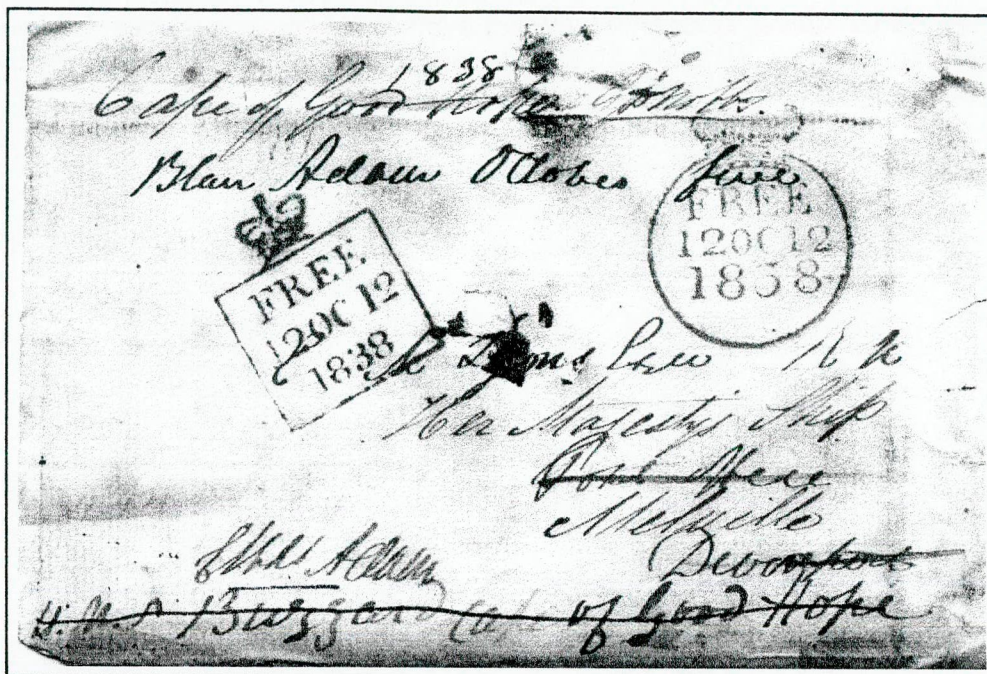 1838
Cape of Good Hope
Blair Adam October five
FREE
12OC12
1838
FREE
12OC12
1838
R N
Her Majesty's Ship
Melville
Devonport
Adam
H. M. S. Buzzard Cape of Good Hope